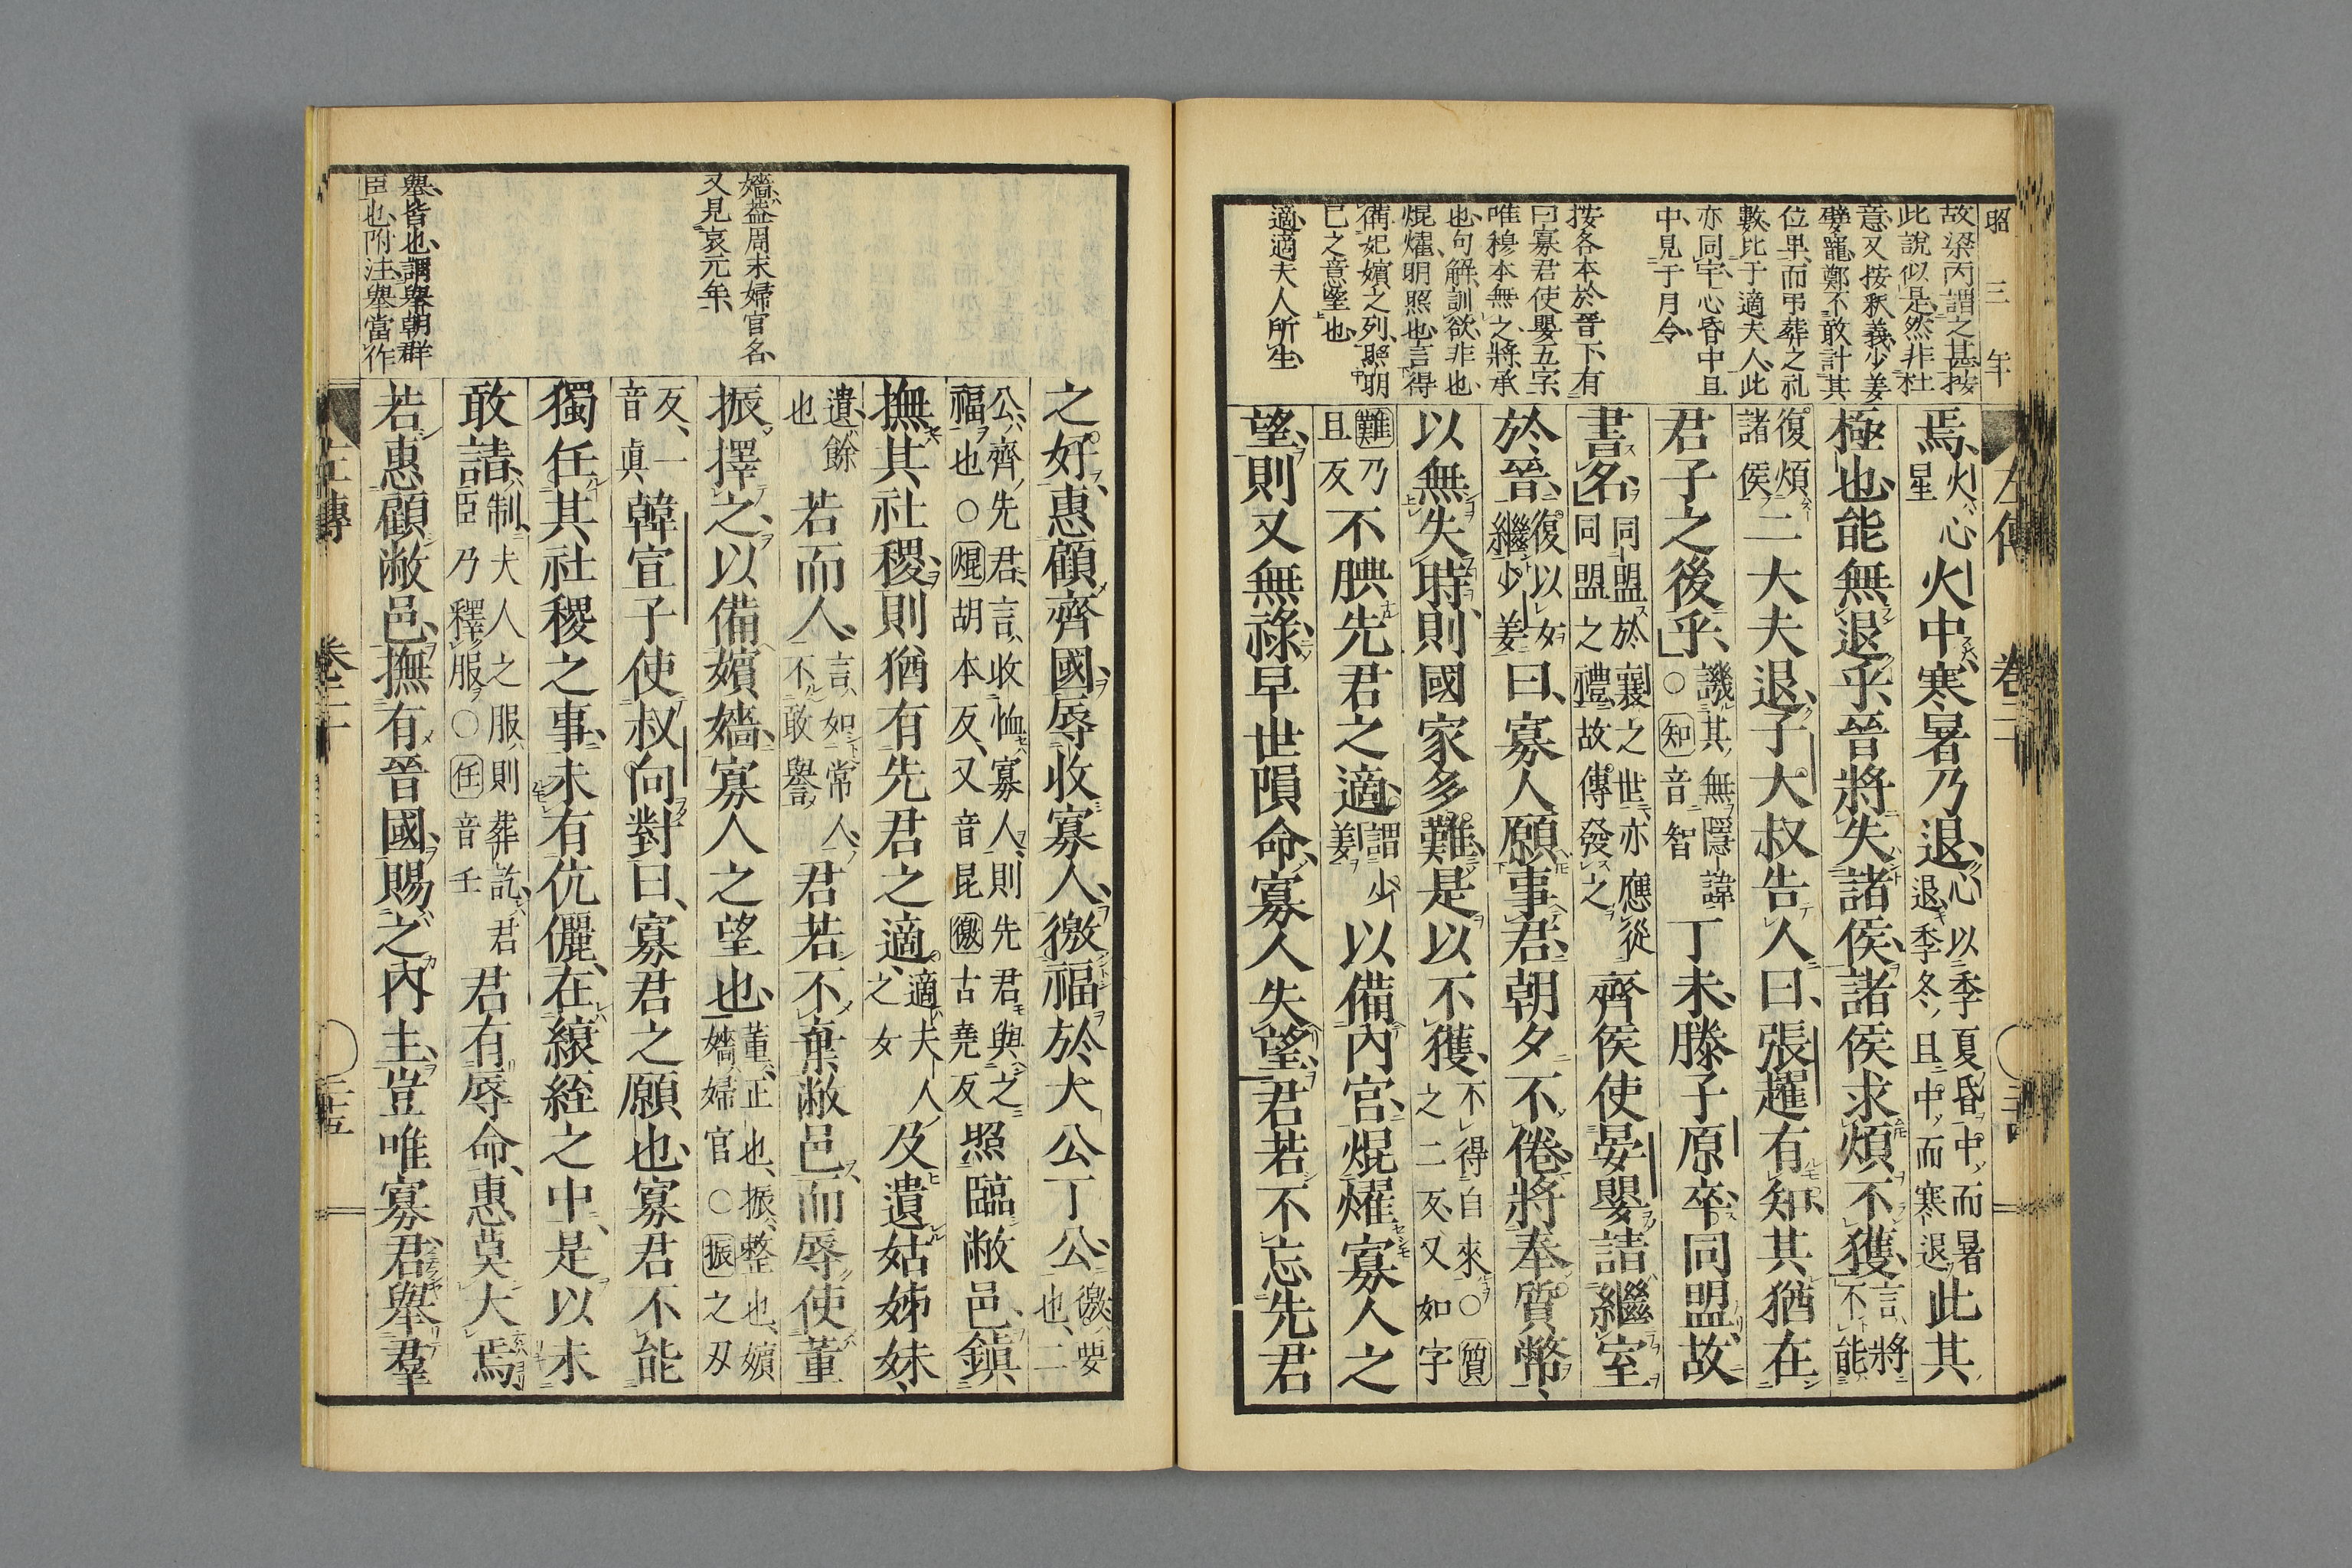 昭三年
故梁丙謂之甚按
此說似是然非杜
意又按釈義少姜
嬖寵鄭不敢計其
位卑而弔葬之礼
數比于適夫人此
亦同
心昏中且
中見于月令
按各本於晉下有
曰寡君使嬰五字
唯穆本無之將承
也句解訓欲非也
焜燿明照也言得
備妃嬪之列照明
巳之意
適適夫人所生
左傳 卷二十
焉、火、心星火中寒暑乃退、心以季夏昏中、而暑退、季冬、旦中、而寒退此其
極也、能無退乎、晉將失諸侯、諸侯求煩不獲、言將不能
復煩諸侯二大夫退、子大叔告人曰、張趯有知、其猶在
君子之後乎、譏其無隱諱○知音智丁未、滕子原卒、同盟、故
書名、同盟於襄之世、亦應從同盟之禮、故傳發之齊侯使晏嬰請繼室
於晉、復以女繼少姜曰、寡人願事君、朝夕不倦、將奉質幣、
以無失時、則國家多難、是以不獲、不得自來○質之二反、又如字
難乃旦反不腆先君之適、謂少姜以備內官、焜燿寡人之
望、則又無祿、早世隕命、寡人失望、君若不忘先君
嬙、蓋周末婦官名、
又見哀元年、
舉、皆也、謂舉朝群
臣也、附注舉當作
之好、惠顧齊國、辱收寡人、徼福於大公丁公、徼、要也、二
公、齊先君、言收恤寡人、則先君與之福也○焜胡本反、又音昆徼古堯反照臨敝邑、鎮
撫其社稷、則猶有先君之適、適夫人之女及遺姑姊妹、
遺、餘也若而人、言如常人、不敢譽君若不棄敝邑、而辱使董
振擇之、以備嬪嬙、寡人之望也、董、正也、振、整也、嬪嬙、婦官○振之刃
反、一音真韓宣子使叔向對曰、寡君之願也、寡君不能
獨任其社稷之事、未有伉儷、在縗絰之中、是以未
敢請、制、夫人之服、則葬訖、君臣乃釋服○任音壬君有辱命、惠莫大焉、
若惠顧敝邑、撫有晉國、賜之內主、豈唯寡君、舉羣
左傳 卷二十 二十五